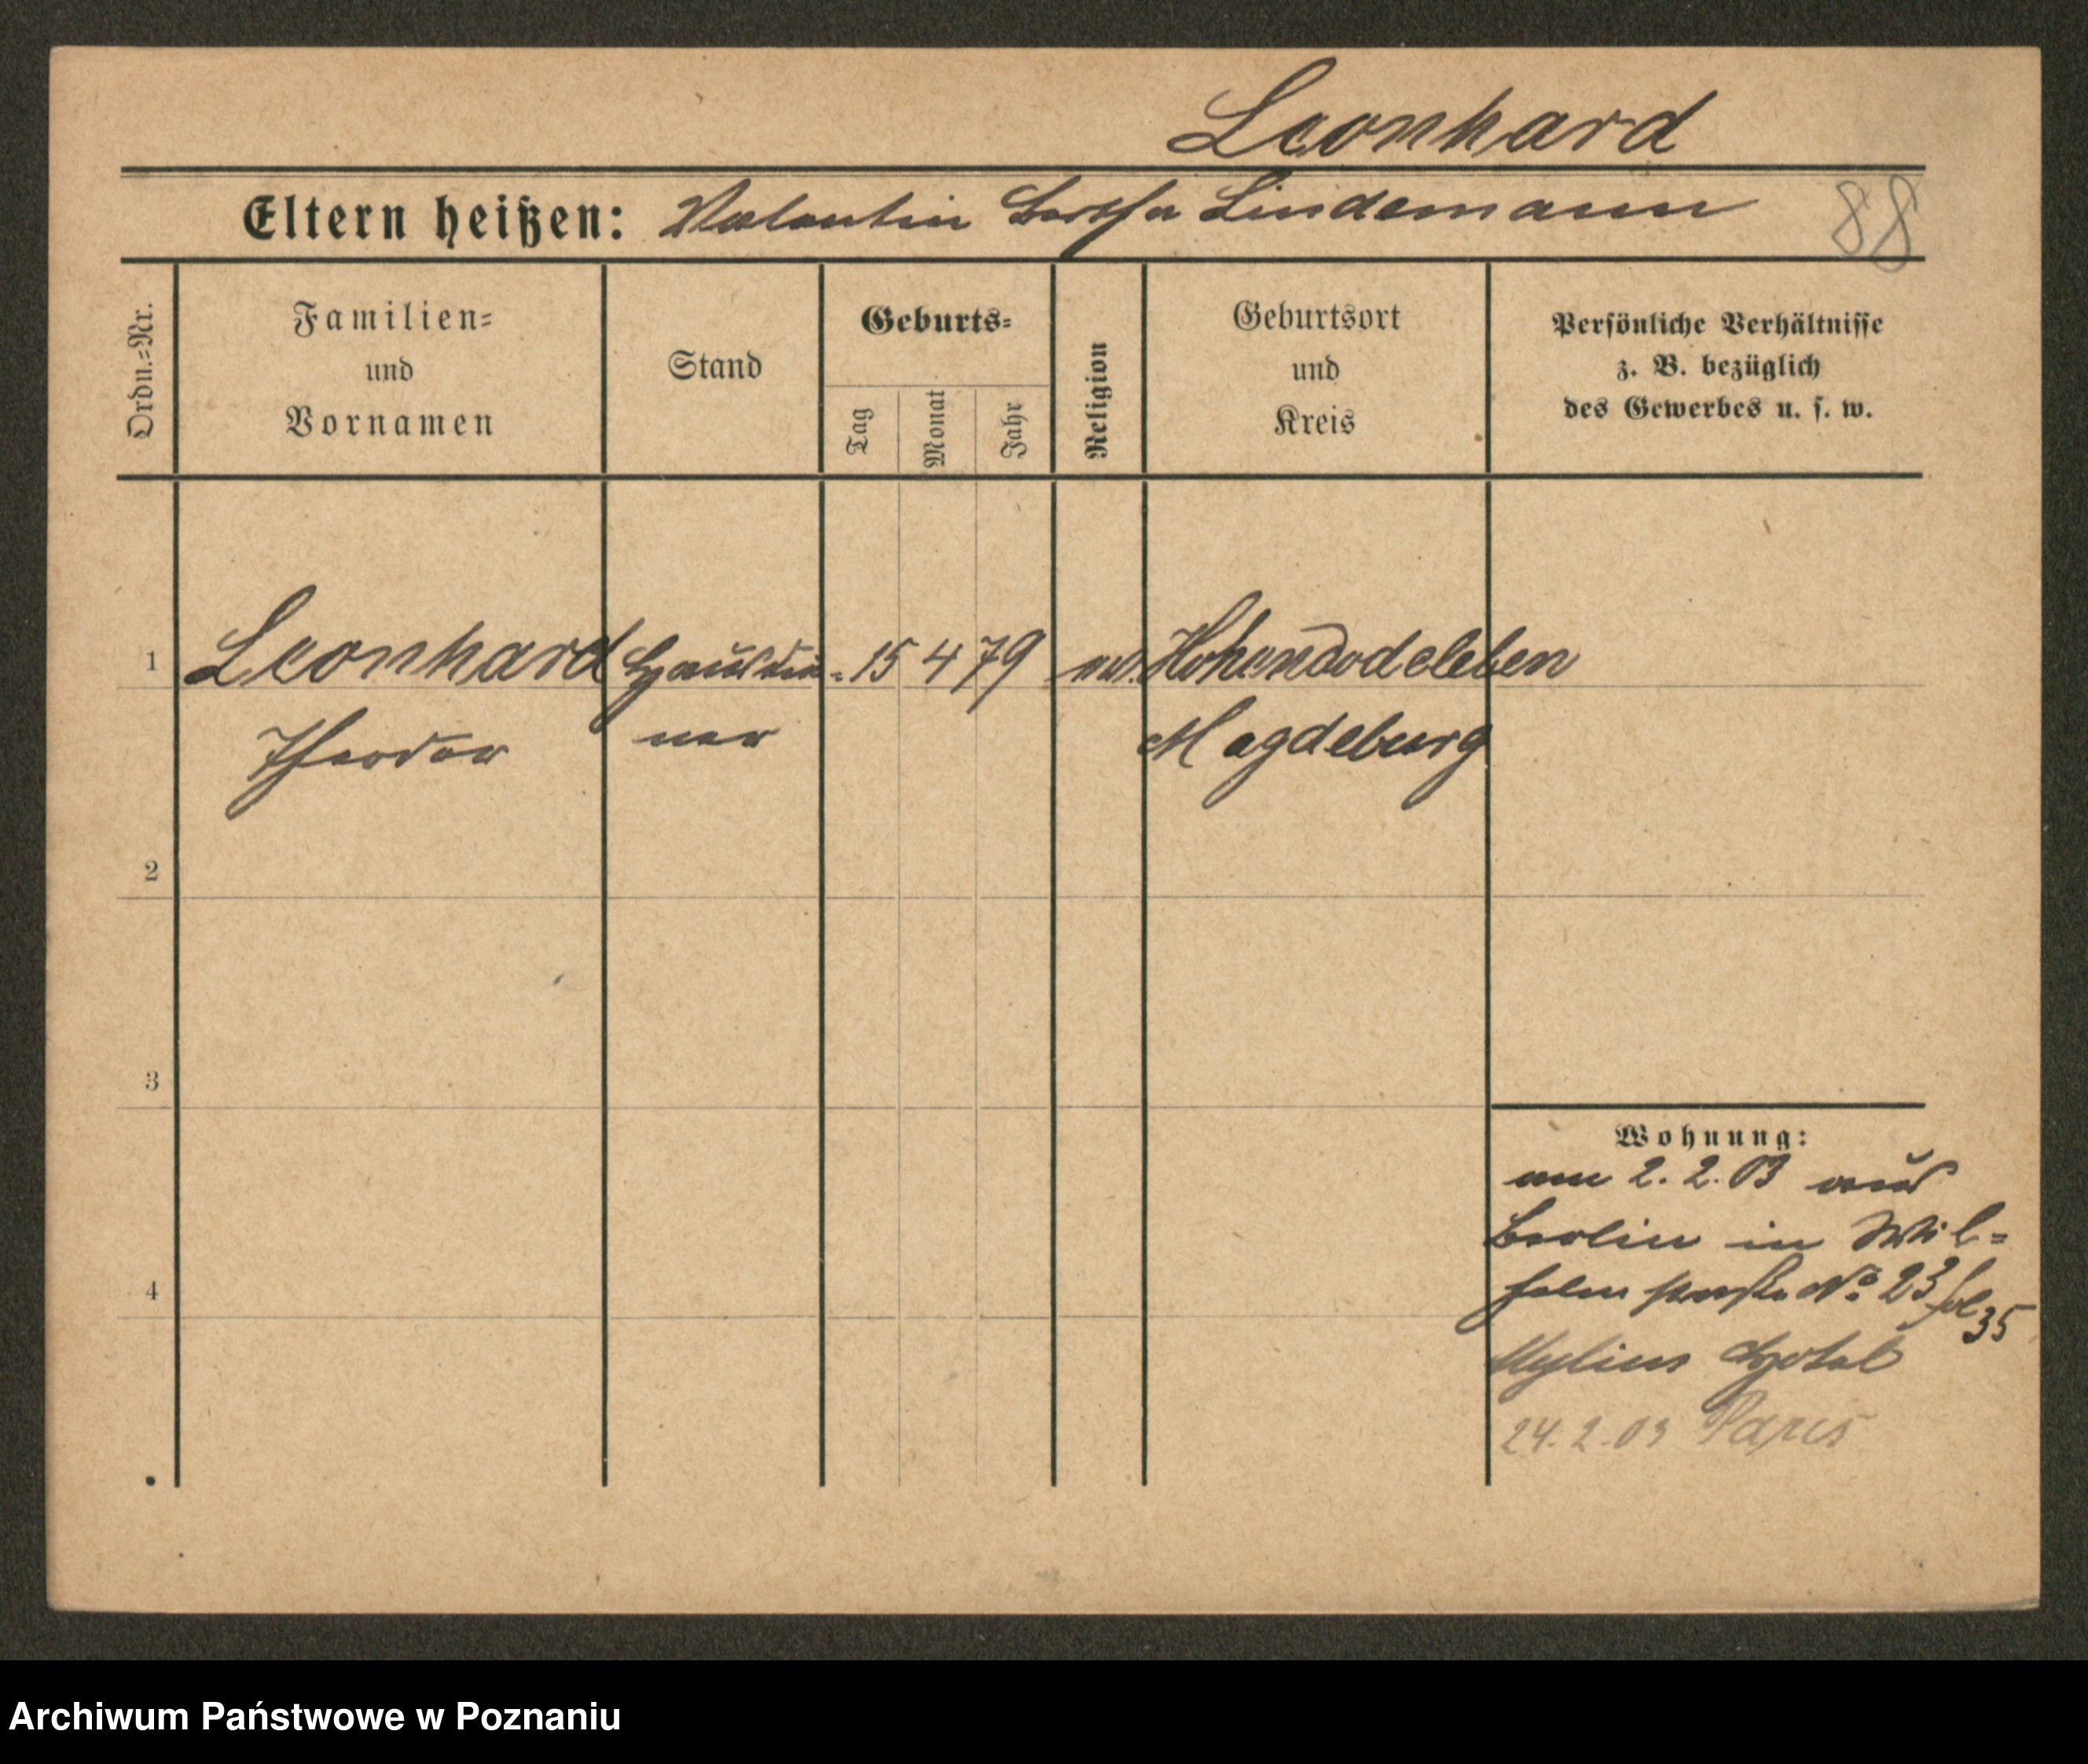 Leonhard
Eltern heißen: Valentin Bertha Lindemann 88
Ordn.=Nr.
Familien=
und
Vornamen
Stand
Geburts=
Tag
Monat
Jahr
Religion
Geburtsort
und
Kreis
Persönliche Verhältnisse
z. B. bezüglich
des Gewerbes u. s. w.
1 Leonhard 15 4 79 ev. Hohendodeleben
Theodor ner Magdeburg
2
3
4
Wohnung:
am 2. 2. 03 aus
Berlin in Wil=
helmstraße No 23 fol 35
Mylius Hotel
24. 2. 03 Paris
Archiwum Państwowe w Poznaniu